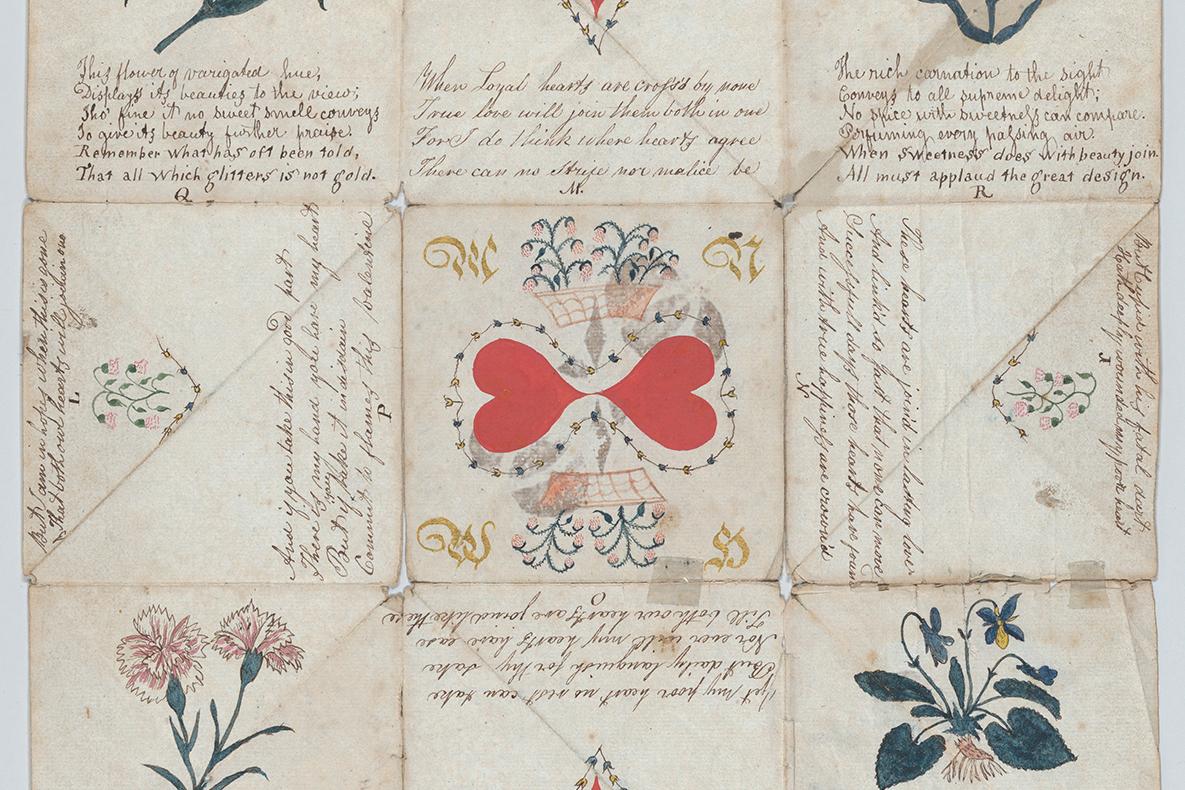 This flower of varigated hue,
Displays its beauties to the view;
Tho' fine it no sweet smell conveys
To give its beauty further praise.
Remember what has oft been told,
That all which glitters is not gold.
Q
When Loyal hearts are cross'd by none
True love will join them both in one
For I do think where hearts agree
There can no Strife nor malice be
M.
The rich carnation to the sight
Conveys to all supreme delight;
No spice with sweetness can compare.
Perfuming every passing air.
When sweetness does with beauty join.
All must applaud the great design.
R
But I am in hopes when this is gone
That both our hearts will join in one
L
And if you take this in good part
There is my hand you have my heart
But if you take it in disdain
Commit to flames this valentine
P
M N
W H
These hearts are join'd in lasting love
And link'd so fast that none can move
Successfull days those hearts have found
And with true happiness are crown'd
N
But Cupid with his fatal dart
Hath deeply wounded my poor heart
I
Yet my poor heart no rest can take
But daily languish for thy sake
Nor ever will my hearts have ease
Till both our hearts are joined like these
O